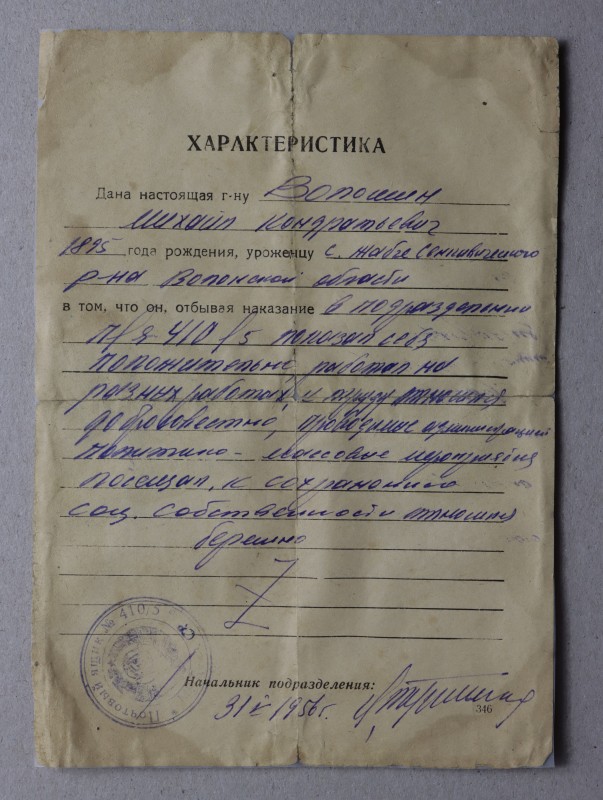 ХАРАКТЕРИСТИКА
Дана настоящая г-ну Волошин
Михаил Кондратьевич
1895 года рождения, уроженцу с. Жабче Сенкивического
р-на Волынской области
в том, что он, отбывая наказание в подразделении
п/я 410/5 показал себя
положительно, работал на
разных работах, к труду относился
добросовестно, проводимые администрацией
политико-массовые мероприятия
посещал, к сохранению
соц. собственности относился
бережно
Почтовый ящик № 410/5
Начальник подразделения:
31/V 1956 г.
346